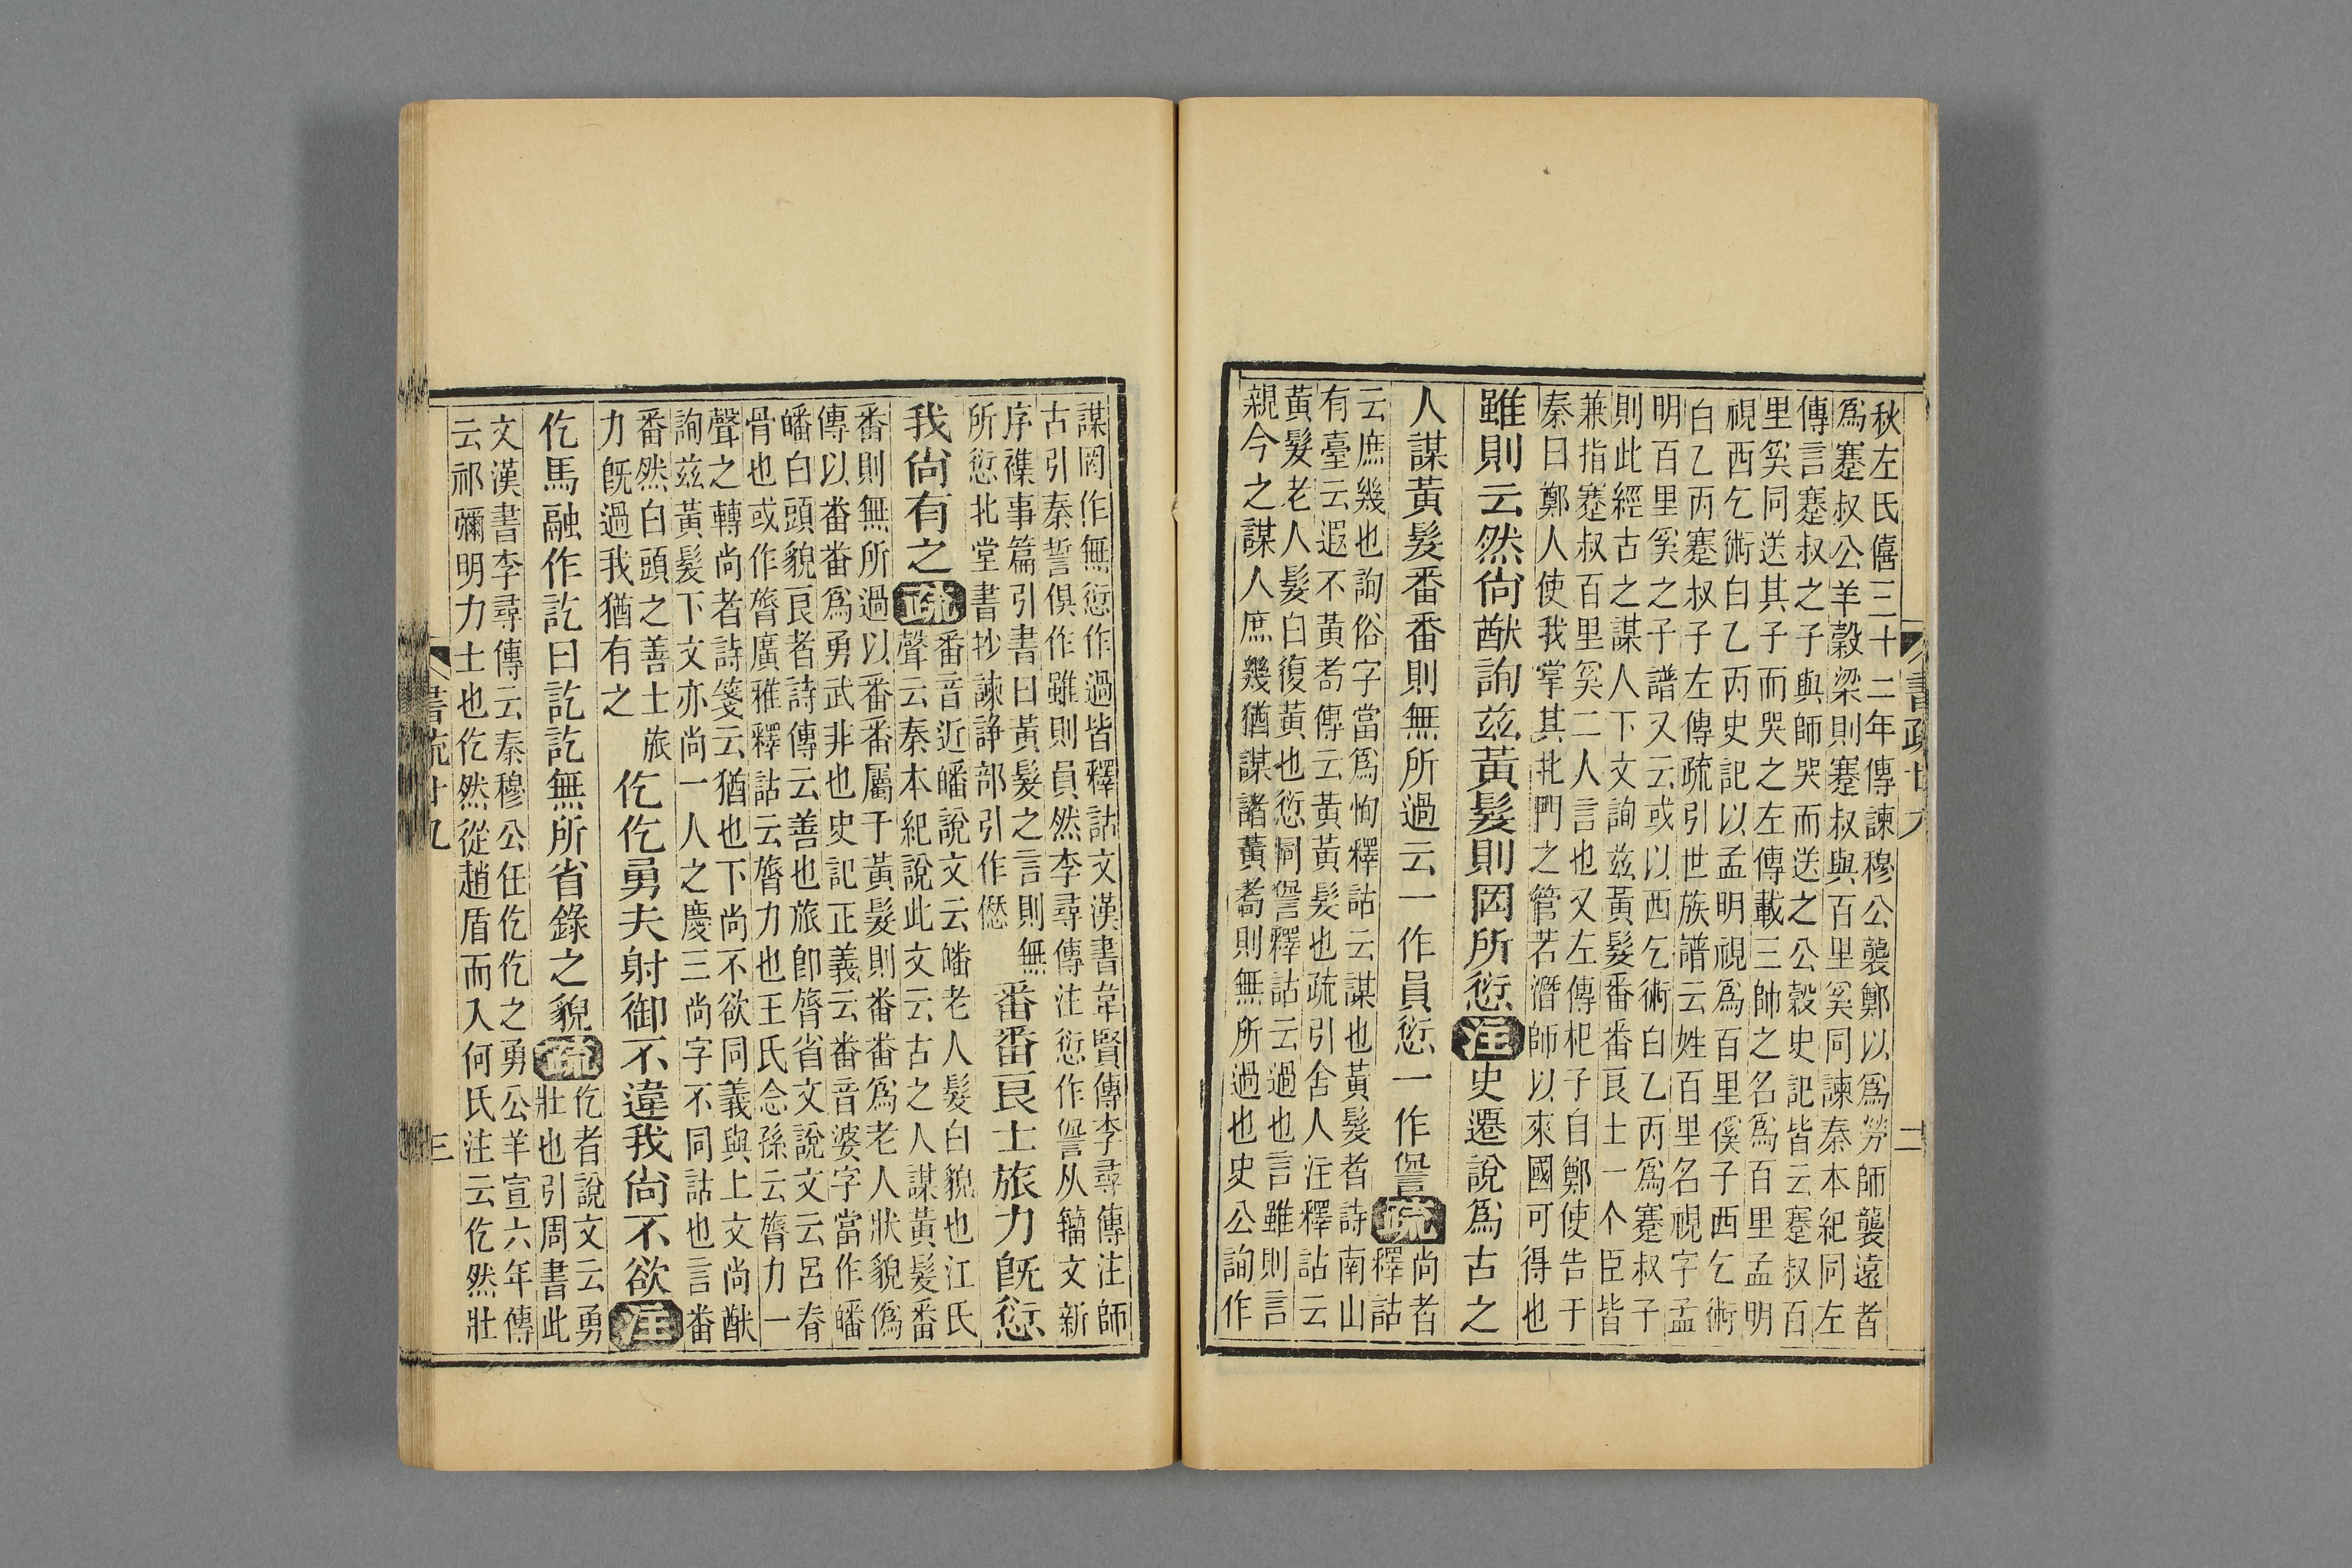 秋左氏僖三十二年傳諫穆公襲鄭以爲勞師襲遠者
爲蹇叔公羊穀梁則蹇叔與百里奚同諫秦本紀同左
傳言蹇叔之子與師哭而送之公穀史記皆云蹇叔百
里奚同送其子而哭之左傳載三帥之名爲百里孟明
視西乞術白乙丙史記以孟明視爲百里傒子西乞術
白乙丙蹇叔子左傳疏引世族譜云姓百里名視字孟
明百里奚之子譜又云或以西乞術白乙丙爲蹇叔子
則此經古之謀人下文詢兹黃髮番番良士一介臣皆
兼指蹇叔百里奚二人言也又左傳杞子自鄭使告于
秦曰鄭人使我掌其北門之管若潛師以來國可得也
雖則云然尙猷詢兹黃髮則罔所愆注史遷說爲古之
人謀黃髮番番則無所過云一作員愆一作諐疏尚者釋詁
云庶幾也詢俗字當爲恂釋詁云謀也黃髮者詩南山
有臺云遐不黃耇傳云黃黃髮也疏引舍人注釋詁云
黃髮老人髮白復黃也愆同諐釋詁云過也言雖則言
親今之謀人庶幾猶謀諸黃耇則無所過也史公詢作
書疏廿九
二
謀罔作無愆作過皆釋詁文漢書韋賢傳李尋傳注師
古引秦誓俱作雖則員然李尋傳注愆作諐从籀文新
序襍事篇引書曰黃髮之言則無
所愆北堂書抄諫諍部引作㥶
番番良士旅力旣愆
我尙有之疏番音近皤說文云皤老人髮白貌也江氏
聲云秦本紀說此文云古之人謀黃髮番
番則無所過以番番屬于黃髮則番番爲老人狀貌僞
傳以番番爲勇武非也史記正義云番音婆字當作皤
皤白頭貌良者詩傳云善也旅卽膂省文說文云呂脊
骨也或作膂廣雅釋詁云膂力也王氏念孫云膂力一
聲之轉尚者詩箋云猶也下尚不欲同義與上文尚猷
詢兹黃髮下文亦尚一人之慶三尚字不同詁也言番
番然白頭之善士旅
力旣過我猶有之
仡仡勇夫射御不違我尙不欲注
仡馬融作訖曰訖訖無所省錄之貌疏仡者說文云勇
壯也引周書此
文漢書李尋傳云秦穆公任仡仡之勇公羊宣六年傳
云祁彌明力士也仡然從趙盾而入何氏注云仡然壯
書疏廿九
三